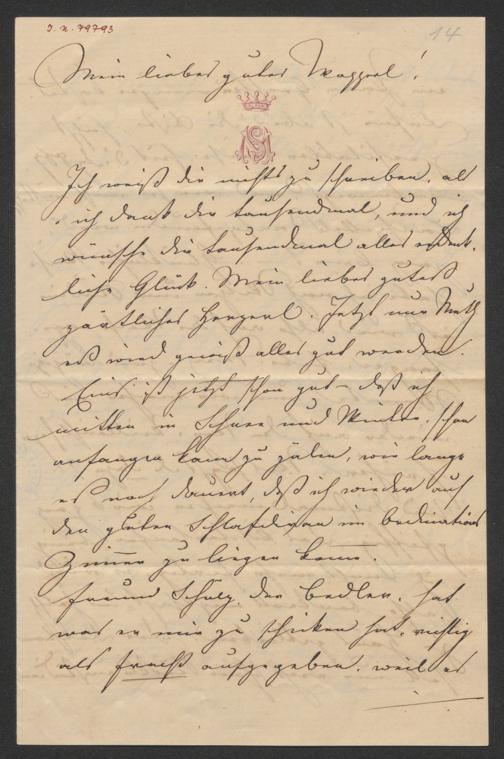 I. N. 79793
14
Mein liebes gutes Mopperl!
Ich weiß dir nichts zu schreiben, als
ich dank dir tausendmal, und ich
wünsche dir tausendmal alles erdenk-
liche Glück. Mein liebes gutes
zärtliches Herzerl. Jetzt nur Muth
es wird gewiß alles gut werden.
Eins ist jetzt schon gut – daß ich
mitten in Schnee und Winter, schon
anfangen kann zu zälen, wie lange
es noch dauert, daß ich wieder auf
den guten Schlafdivan im Ordinations
Zimmer zu liegen komm.
Freund Schulz, der Bedler, hat
was er mir zu schicken hat, richtig
als Fracht aufgegeben, weil es